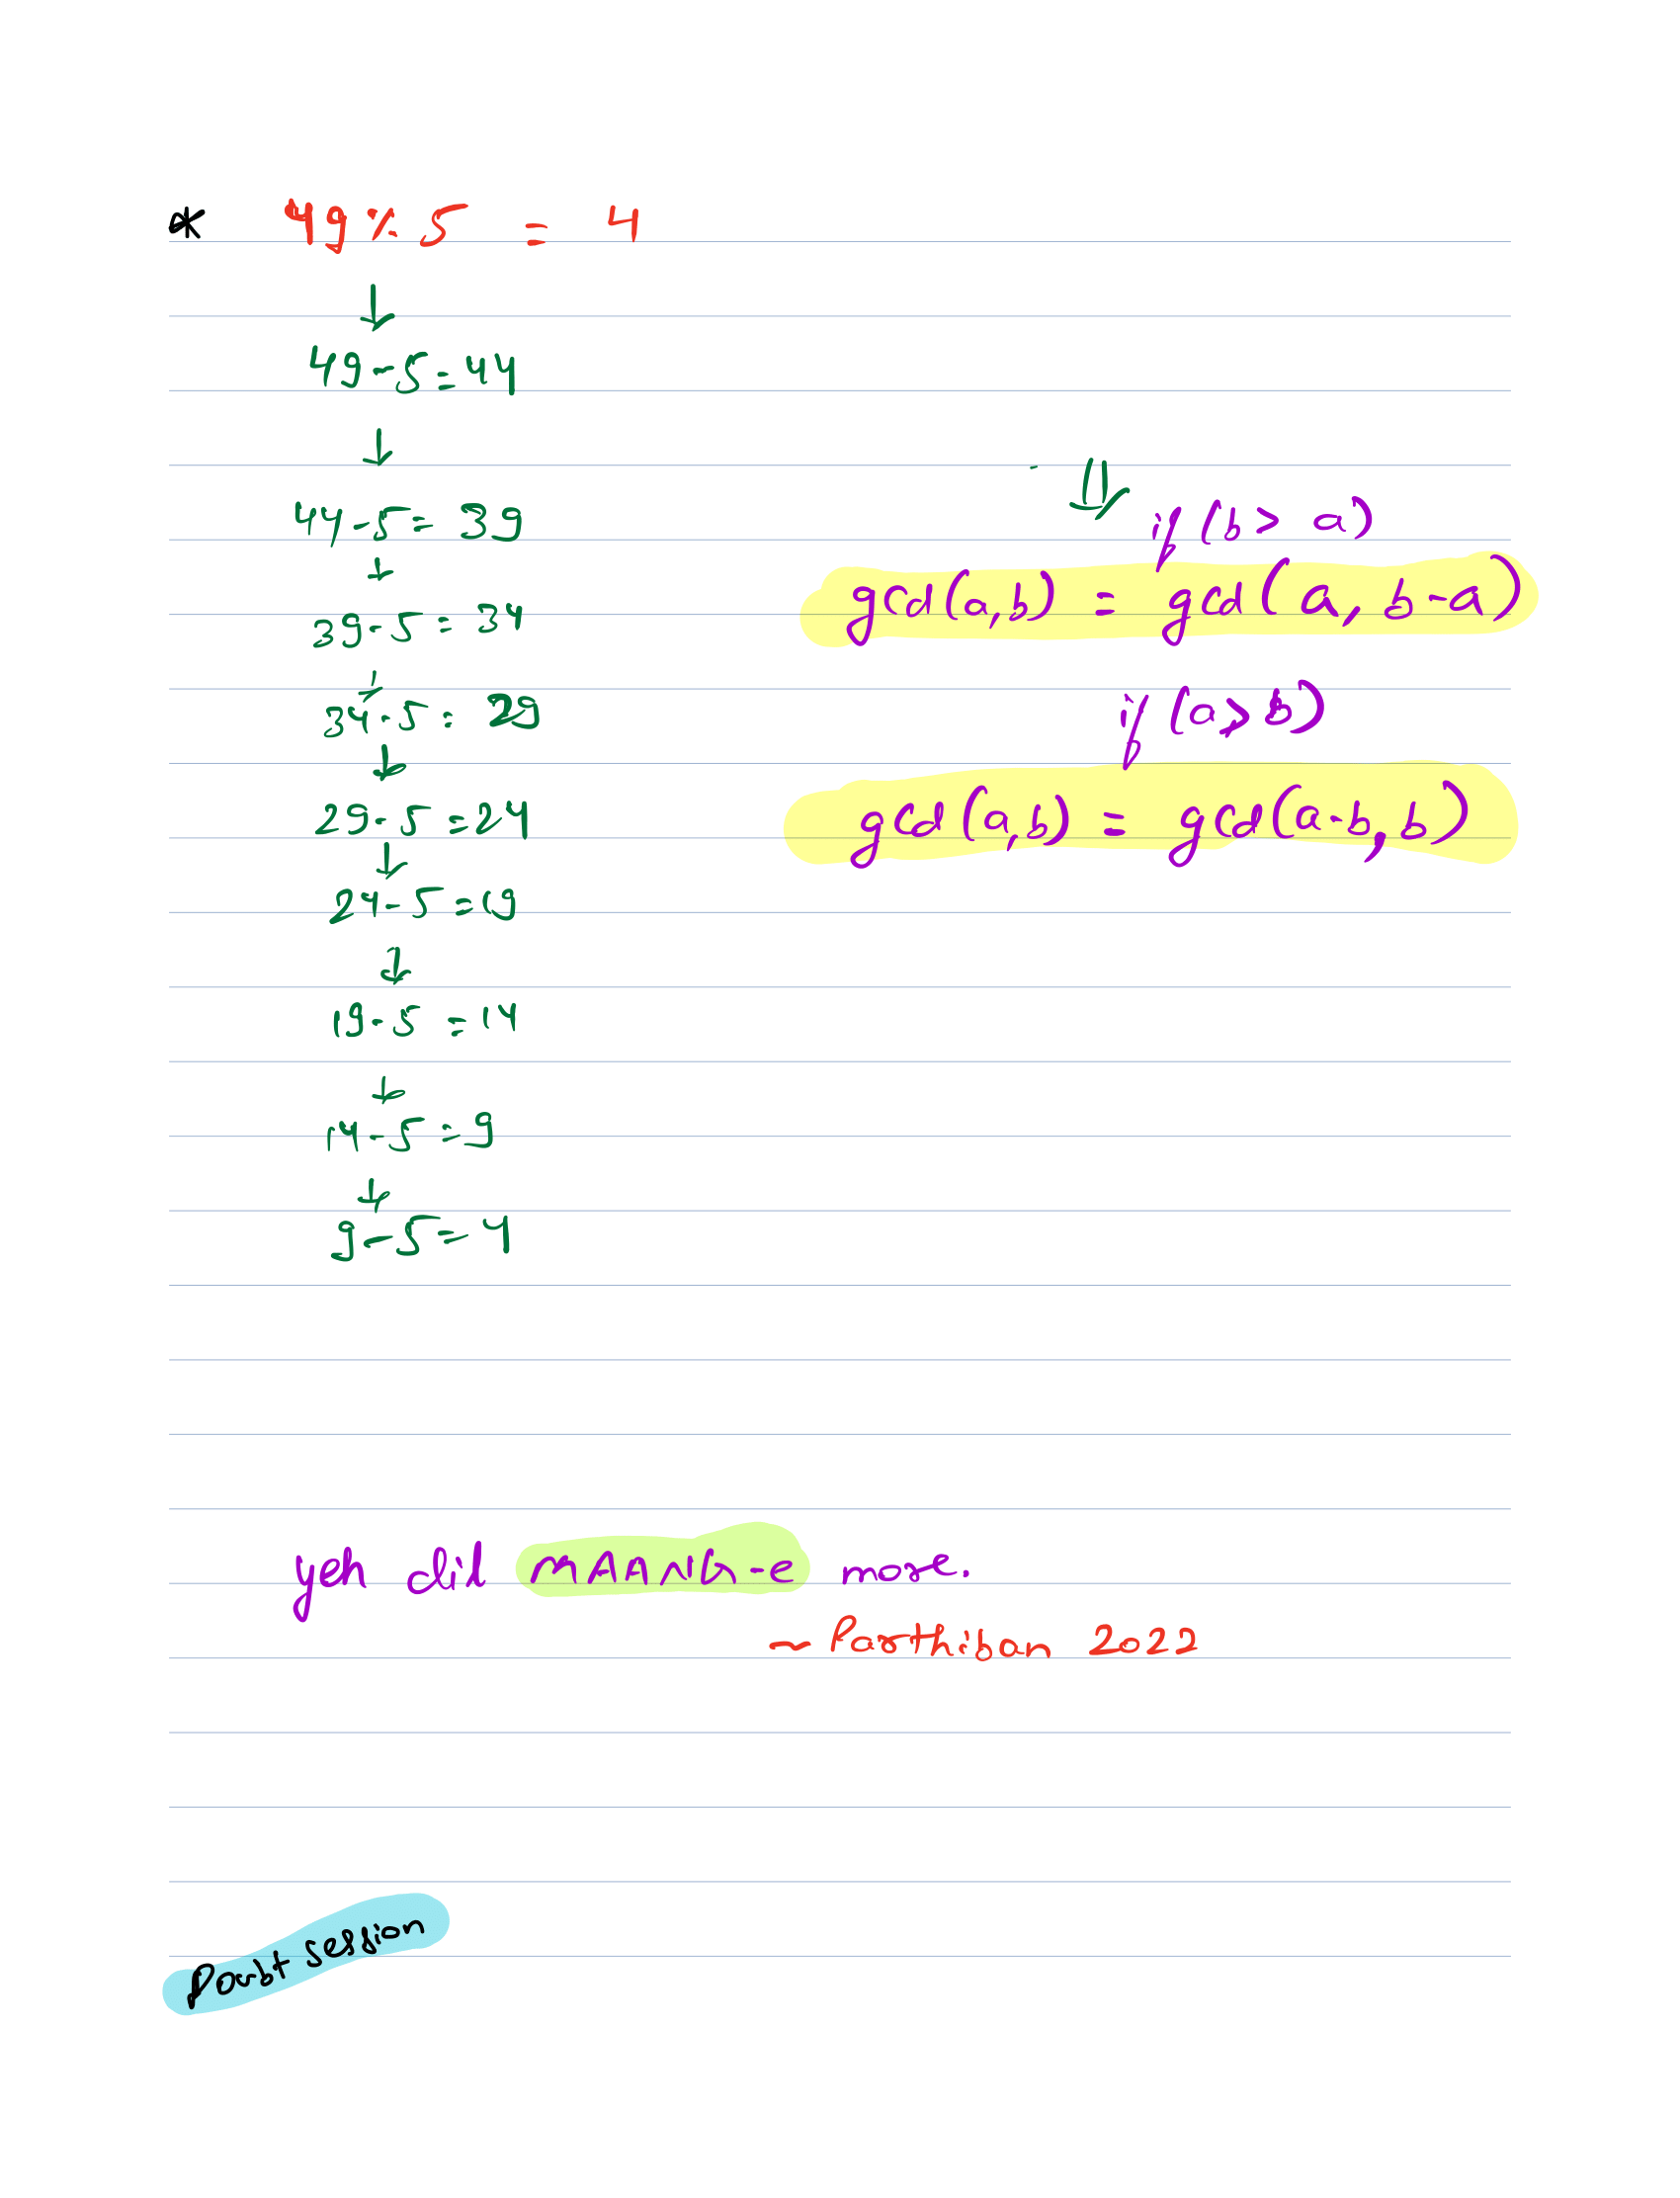 * 49 % 5 = 4
49 - 5 = 44
44 - 5 = 39
39 - 5 = 34
34 - 5 = 29
29 - 5 = 24
24 - 5 = 19
19 - 5 = 14
14 - 5 = 9
9 - 5 = 4
if (b > a)
gcd(a,b) = gcd(a, b-a)
if (a>b)
gcd(a,b) = gcd(a-b, b)
yeh dil more.
~ Parthiban 2022
Doubt session